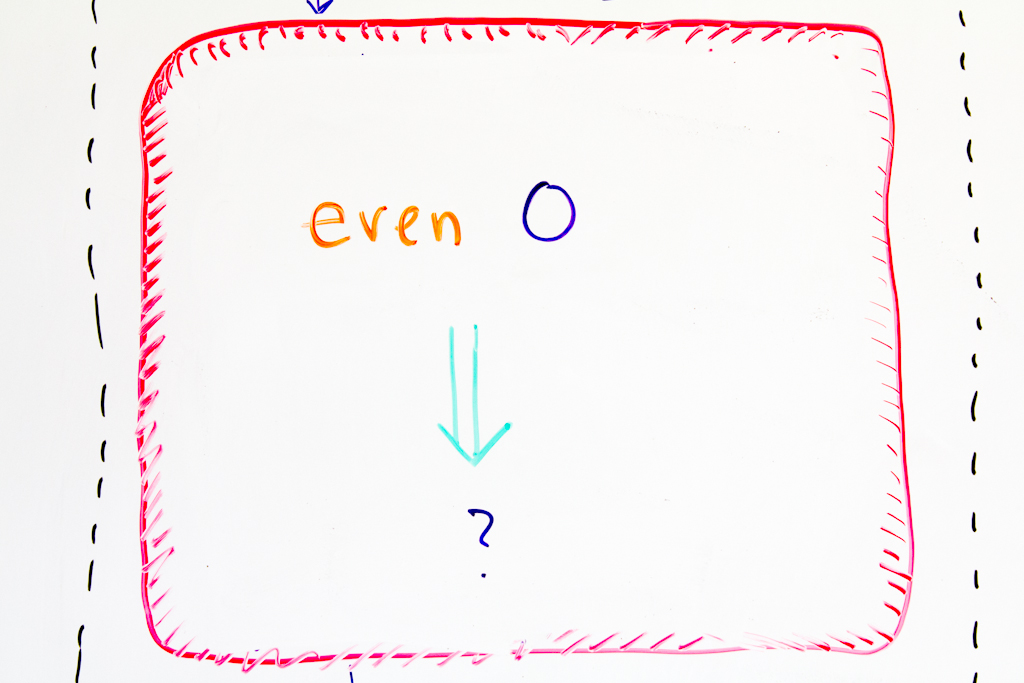 even O
?